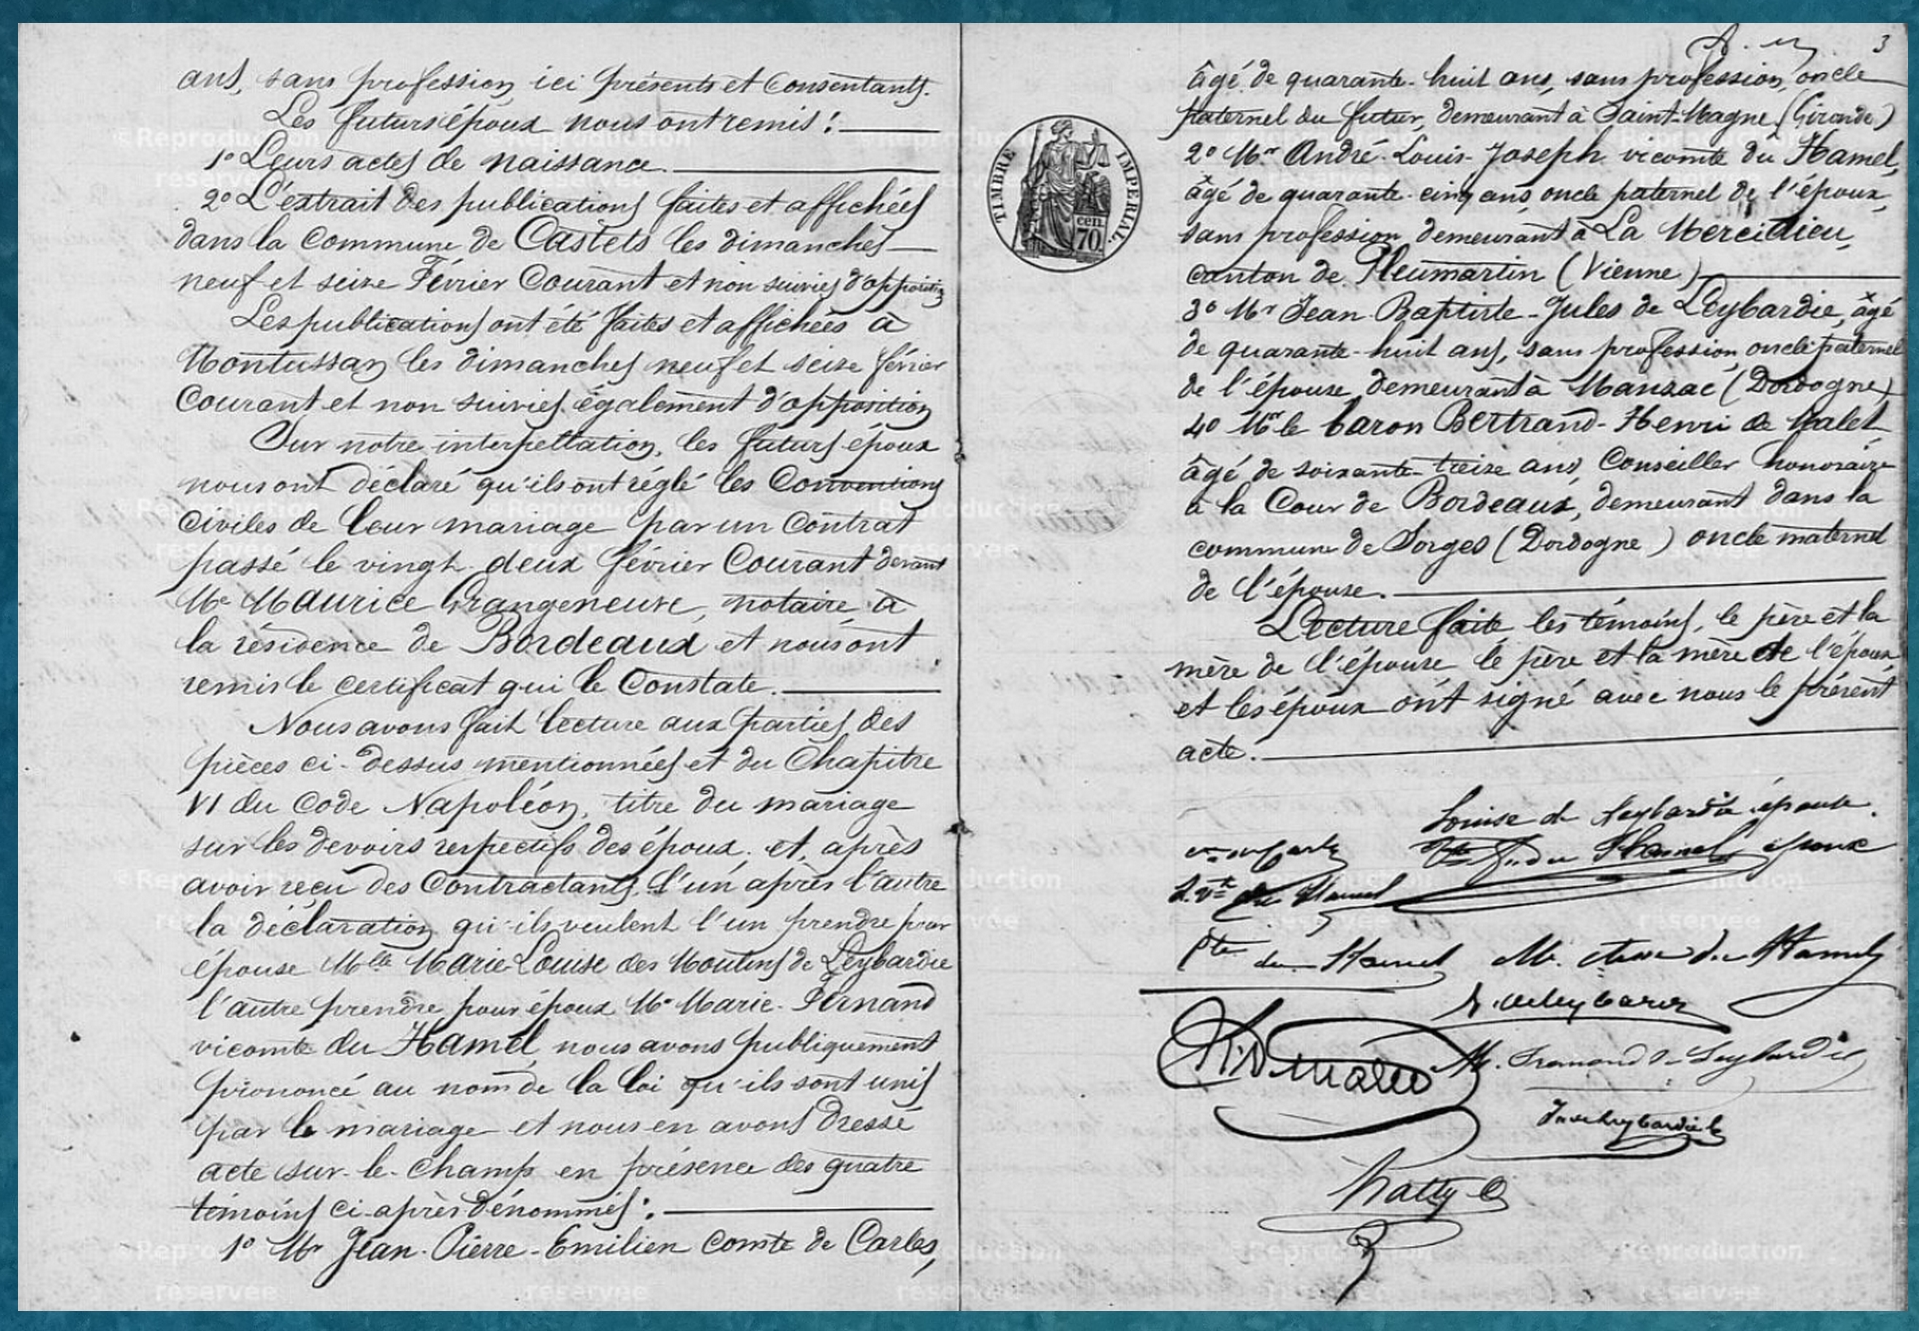 ans, sans profession, ici présents et Consentants.
Les futurs époux nous ont remis:
1° Leurs actes de naissance.
2° L'extrait des publications faites et affichées
dans la Commune de Castets les dimanches
neuf et seize Février Courant et non suivies d'opposition
Les publications ont été faites et affichées à
Montussan les dimanches neuf et seize février
Courant et non suivies également d'opposition
Sur notre interpellation, les futurs époux
nous ont déclaré qu'ils ont réglé les Conventions
Civiles de leur mariage par un Contrat
passé le vingt-deux février Courant devant
Me Maurice Grangeneuve, notaire à
la résidence de Bordeaux et nous ont
remis le certificat qui le Constate.
Nous avons fait lecture aux parties des
pièces ci-dessus mentionnées et du Chapitre
VI du Code Napoléon, titre du mariage
sur les devoirs respectifs des époux, et, après
avoir reçu des Contractants, l'un après l'autre
la déclaration qu'ils veulent l'un prendre pour
épouse Mlle Marie Louise des Moutins de Leybardie
l'autre prendre pour époux Mr Marie-Fernand
vicomte du Hamel, nous avons publiquement
prononcé au nom de la loi qu'ils sont unis
par le mariage et nous en avons dressé
acte sur-le-champ en présence des quatre
témoins ci-après dénommés:
1° Mr Jean-Pierre-Emilien Comte de Carles,
3
âgé de quarante-huit ans, sans profession, oncle
paternel du futur, demeurant à Saint-Magne (Gironde)
2° Mr André-Louis-Joseph vicomte du Hamel,
âgé de quarante-cinq ans, oncle paternel de l'époux,
sans profession demeurant à La Mercidieu,
canton de Pleumartin (Vienne)
3° Mr Jean-Baptiste-Jules de Leybardie, âgé
de quarante-huit ans, sans profession, oncle paternel
de l'épouse, demeurant à Manzac (Dordogne)
4° Mr le baron Bertrand-Henri de Malet
âgé de soixante-treize ans, Conseiller honoraire
à la Cour de Bordeaux, demeurant dans la
commune de Sorges (Dordogne) oncle maternel
de l'épouse.
Lecture faite les témoins, le père et la
mère de l'épouse le père et la mère de l'époux
et les époux ont signé avec nous le présent
acte.
TIMBRE IMPERIAL
70 cen
Louise de Leybardie épouse.
Vte F. du Hamel époux
A. Vte du Hamel
Cte du Hamel M. Ctesse du Hamel
M. Fremond de Leybardie
J. de Leybardie
©Reproduction réservée